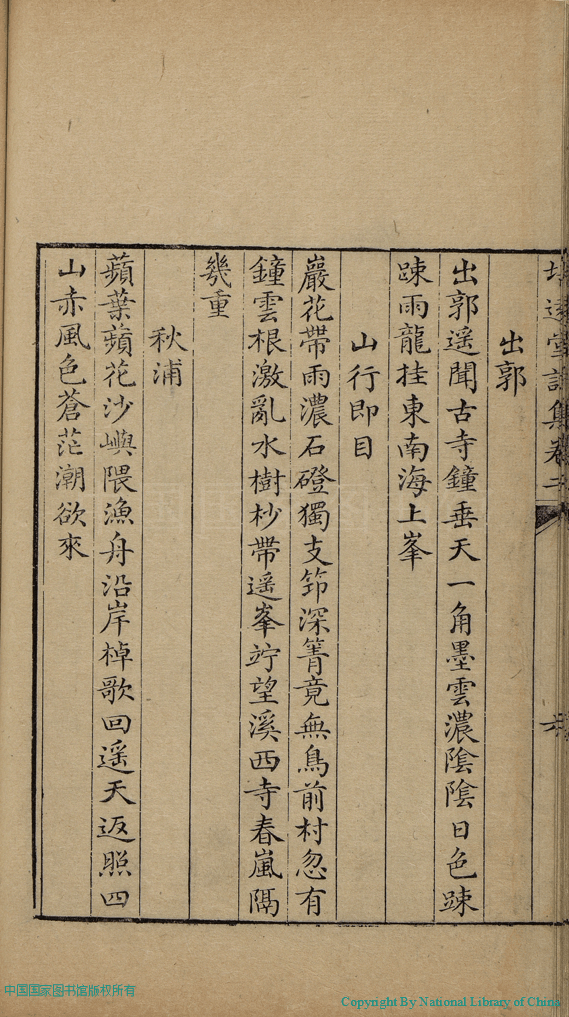 出郭
出郭遥聞古寺鐘垂天一角墨雲濃陰陰日色踈
踈雨龍挂東南海上峯
山行即目
巖花帶雨濃石磴獨支笻深箐竟無鳥前村忽有
鐘雲根激亂水樹杪帶遥峯竚望溪西寺春嵐隔
幾重
秋浦
蘋葉蘋花沙嶼隈漁舟沿岸棹歌回遥天返照四
山赤風色蒼茫潮欲來
中国国家图书馆版权所有
Copyright By National Library of China